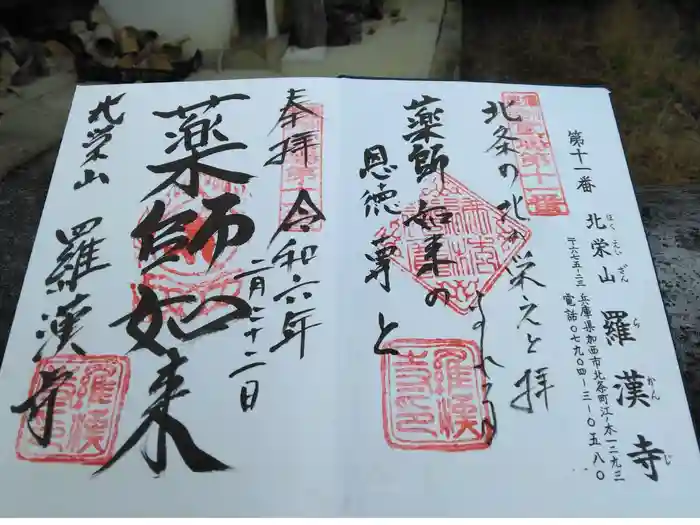 第十一番
北栄山 羅漢寺
ほくえいざん らかんじ
〒六七五-二三 兵庫県加西市北条町江ノ木一二九三
電話〇七九〇四-三-〇五八〇
北条の北が栄えと拝
薬師如来の
恩徳尊と
奉拝 令和六年
二月二十二日
薬師如来
北栄山 羅漢寺